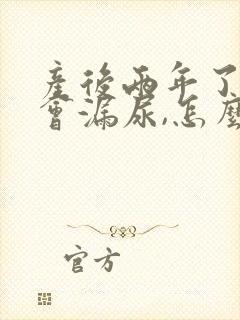 產後兩年了
會漏尿,怎麼
官方